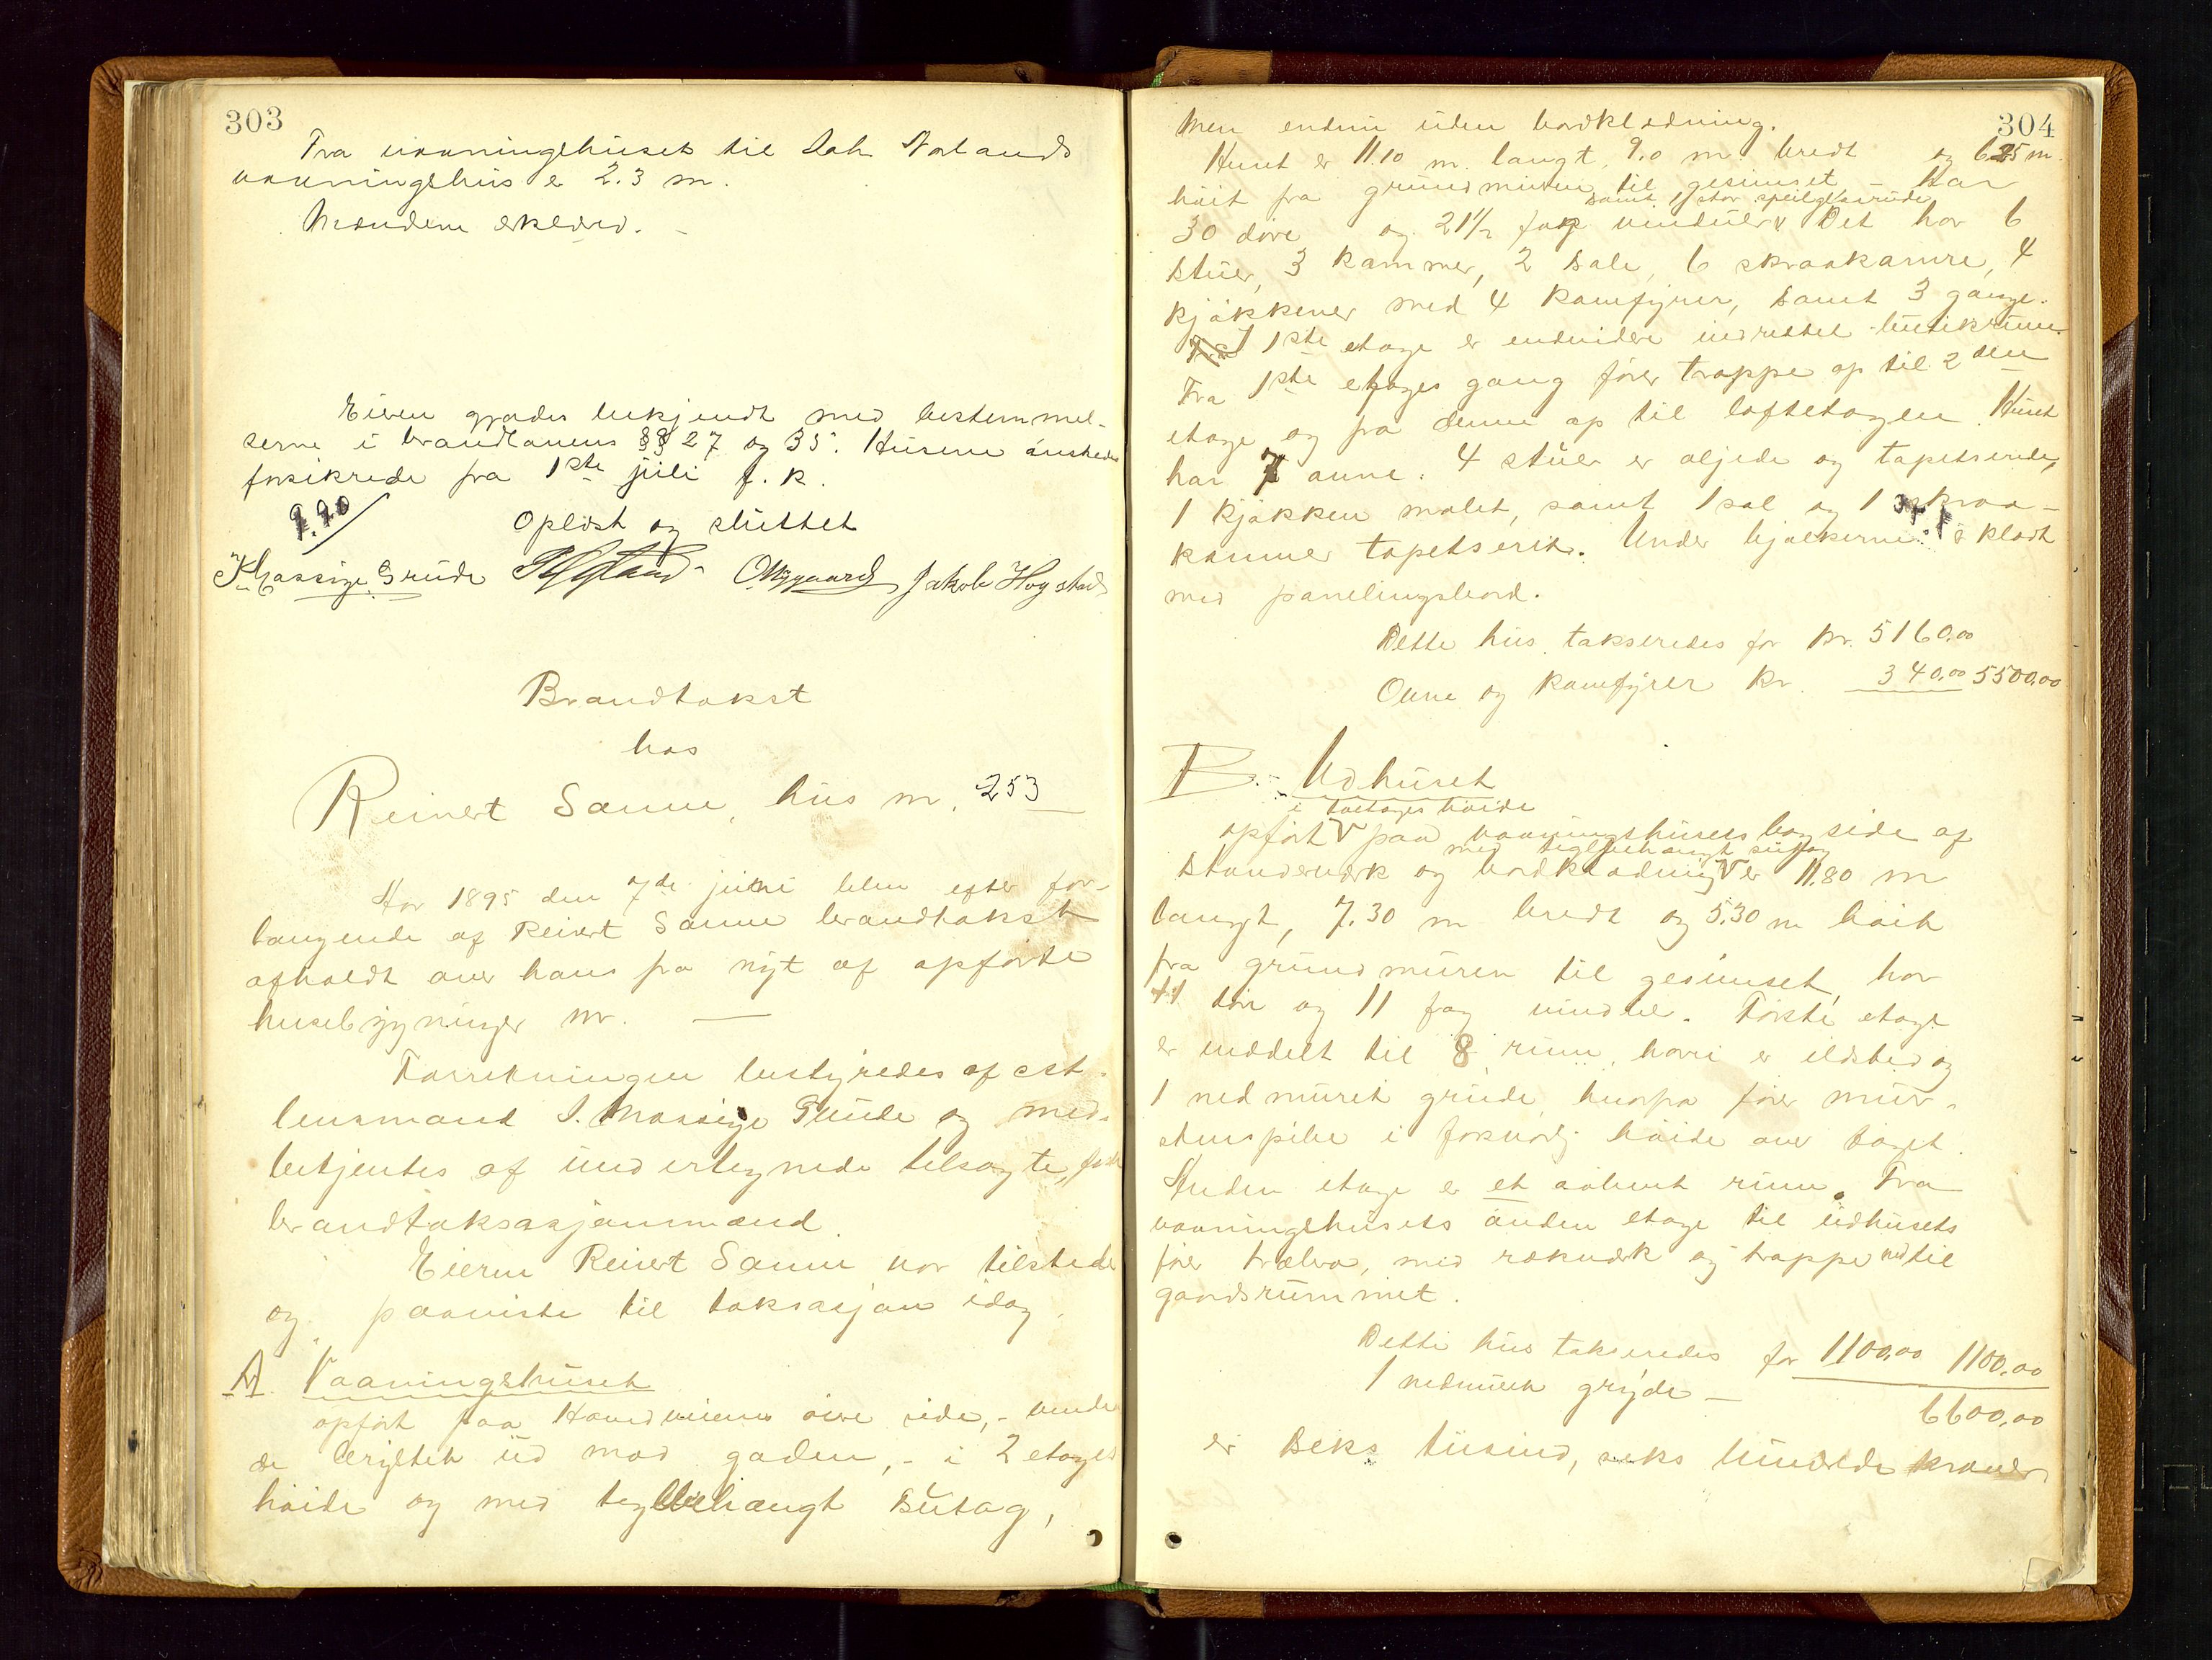 303
Fra vaaningshuset til Joh. Norlands
vaaningshus er 2.3 m.
Mændene erklærd.
Eieren gjordes bekjendt med bestemmel-
serne i brandlovens §§ 27 og 35. Husene ønskedes
forsikrede fra 1ste juli f. k.
9.90
Oplæst og sluttet
Massige Grude O. Nygaard Jakob Hogstad
Brandtakst
hos
Reinert Sanne, hus nr. 253
Aar 1895 den 7de juni blev efter for-
langende af Reinert Sanne brandtakst
afholdt over hans fra nyt af opførte
husebygninger nr. —
Forretningen bestyredes af cst.
lensmand S. Massige Grude og med-
betjentes af undertegnede tilsagte, faste
brandtaksasjonsmænd.
Eieren Reinert Sanne var tilstede
og paaviste til taksasjon idag.
A. Vaaningshuset
opført paa Hovedveiens øivre side, - venden-
de Brystet ud mod gaden, - i 2 etages
høide og med teglbehængt Sutag,
304
men endnu uden bordklædning.
Huset er 11.10 m. langt, 9.0 m. bredt og 6.25 m.
høit fra grundmuren til gesimset - Har
samt 1 stor speilglasrude
30 døre og 21 1/2 fag vinduer. Det har 6
stuer, 3 kammer, 2 Sale, 6 skraakamre, 4
kjøkkener med 4 komfyrer, samt 3 gange.
I 1ste etage er endvidere indrettet butikrum.
Fra 1ste etages gang fører trappe op til 2den
etage og fra denne op til loftetagen. Huset
har 7 ovne. 4 stuer er oljede og tapetserede,
1 kjøkken malet, samt 1 sal og 1 skraa-
kammer tapetseret. Under bjælkerne er klædt
med panelingsbord.
Dette hus takseredes for kr. 5160.00
Ovne og komfyrer kr. 340.00 5500.00
B. Udhuset
i toetages høide
opført V paa vaaningshusets bagside af
med teglbehængt sutag
Stenderværk og bordklædning V er 11.80 m
langt, 7.30 m bredt og 5.30 m høit
fra grundmuren til gesimset, har
11 døre og 11 fag vindue. Første etage
er inddelt til 8 rum, hvori er ildsted og
1 nedmuret grude, hvorfra fører mur-
stenspibe i forsvarlj. høide over taget.
Anden etage er et aabent rum. Fra
vaaningshusets anden etage til udhusets
fører træbro, med rækværk og trappe ned til
gaardsrummet.
Dette hus takseredes for 1100.00 1100.00
1 nedmuret gryde —
6600.00
er Seks tusind, seks hundrede kroner